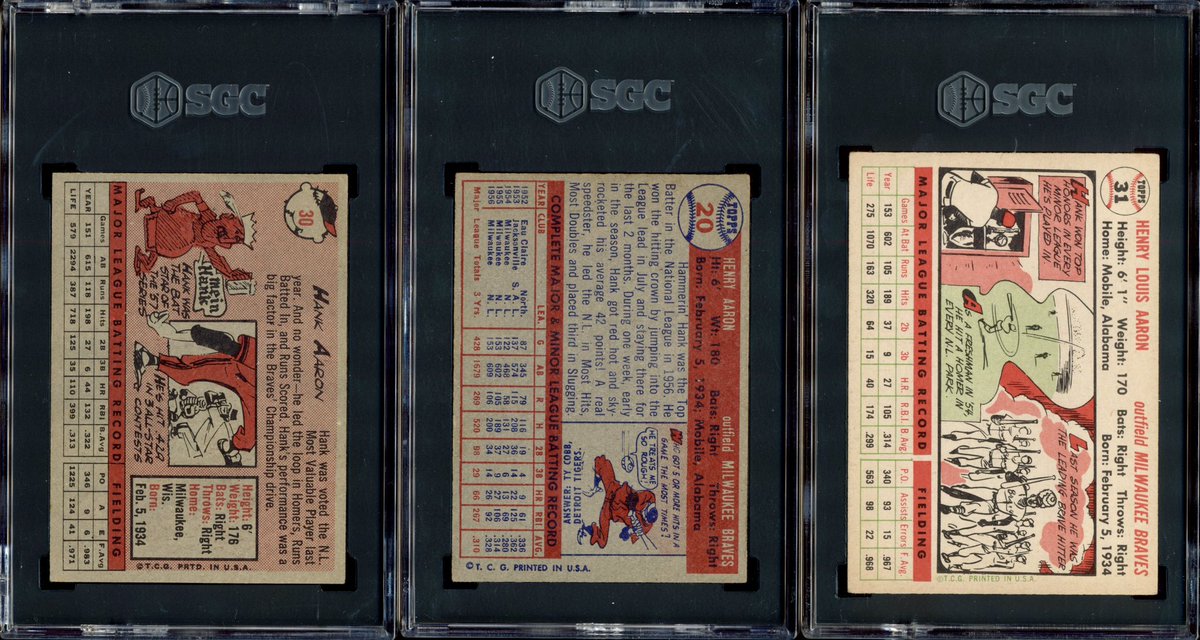 SGC
30
HANK AARON
Hank was voted the N.L.
Most Valuable Player last
year. And no wonder—he led the loop in Homers, Runs
Batted In, and Runs Scored. Hank's performance was a
big factor in the Braves' Championship drive.
Mein Hank
HANK WAS
THE BAT
STAR OF
THE '57
SERIES
HE'S HIT .429
IN 3 ALL-STAR
CONTESTS
Height: 6'
Weight: 176
Bats: Right
Throws: Right
Home:
Milwaukee,
Wis.
Born:
Feb. 5, 1934
MAJOR LEAGUE BATTING RECORD FIELDING
Games AB Runs Hits 2B 3B HR RBI B.Avg PO A E F.Avg
YEAR 151 615 118 198 27 6 44 132 .322 346 9 6 .983
LIFE 579 2294 387 718 125 35 110 399 .313 1225 124 41 .971
©T.C.G. PRTD. IN U.S.A.
SGC
TOPPS
20
HENRY AARON outfield MILWAUKEE BRAVES
Ht: 6' Wt: 180 Bats: Right Throws: Right
Born: February 5, 1934; Mobile, Alabama
Hammerin' Hank was the Top
Batter in the National League in 1956. He
won the hitting crown by jumping into the
League lead in July and staying there for
the last 2 months. During one week, early
in the season, Hank got red hot and sky-
rocketed his average 42 points! A real
speedster, he led the N.L. in Most Hits,
Most Doubles and placed third in Slugging.
WHO GOT 5 OR MORE HITS IN A
GAME THE MOST TIMES?
HE TREATS ME
SO ROUGH!
ANSWER: TY COBB,
DETROIT TIGERS.
COMPLETE MAJOR & MINOR LEAGUE BATTING RECORD
YEAR CLUB LEA G AB R H 2B 3B HR RBI AVG.
1952 Eau Claire North. 87 345 79 116 19 4 9 61 .336
1953 Jacksonville S. A. L.
1954 Milwaukee N. L. 122 468 58 131 27 6 13 69 .280
1955 Milwaukee N. L. 153 602 105 189 37 9 27 106 .314
1956 Milwaukee N. L. 153 609 106 200 34 14 26 92 .328
Major League Totals 3 Yrs. 428 1679 269 520 98 29 66 267 .310
©T. C. G. PRINTED IN U.S.A.
SGC
TOPPS
31
HENRY LOUIS AARON outfield MILWAUKEE BRAVES
Height: 6' 1" Weight: 170 Bats: Right Throws: Right
Home: Mobile, Alabama Born: February 5, 1934
HANK WON TOP
HONORS IN EVERY
MINOR LEAGUE
HE'S PLAYED IN.
AS A FRESHMAN IN '54,
HE HIT A HOMER IN
EVERY N.L. PARK.
LAST SEASON HE WAS
THE LEADING BRAVE HITTER
MAJOR LEAGUE BATTING RECORD FIELDING
Games At Bat Runs Hits 2b 3b H.R. R.B.I. B Avg P.O. Assists Errors F. Avg
Year 153 602 105 189 37 9 27 106 .314 340 93 15 .967
Life 275 1070 163 320 64 15 40 174 .299 563 98 22 .968
©T.C.G. PRINTED IN U.S.A.